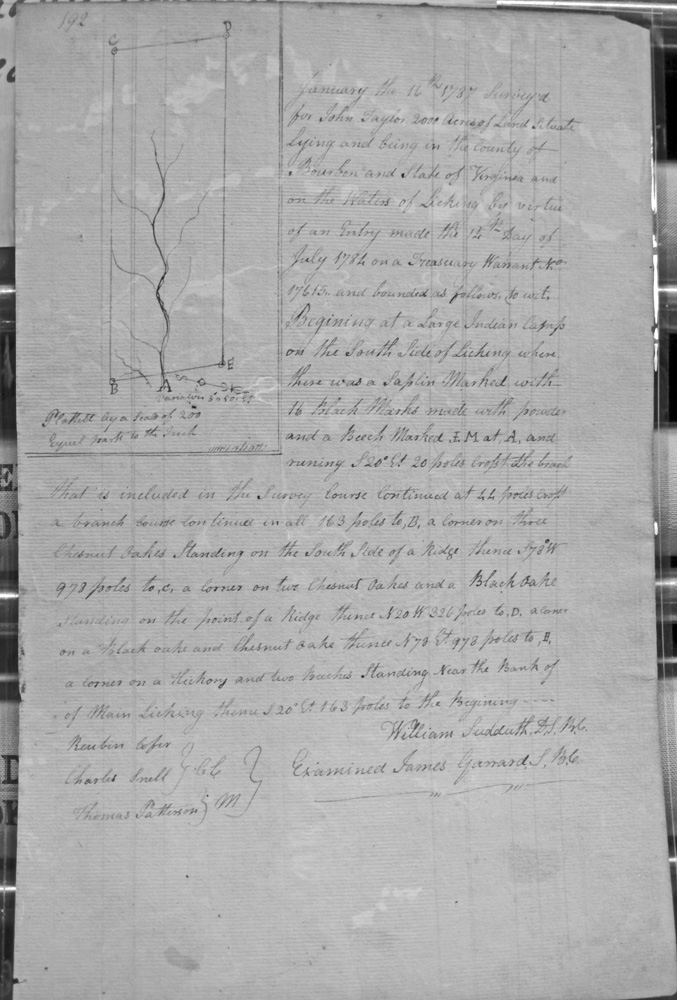 192
C
D
B
A
E
Variation 5° 20' Et
Platted by a Scale of 200
Equel parts to the Inch
January the 16th 1787 Survey'd
for John Taylor 2000 Acres of Land Situate
Lying and being in the County of
Bourbon and State of Virginea and
on the Waters of Licking by virtue
of an Entry made the 14th Day of
July 1784 on a Treasuary Warrant No
17615. and bounded as follows, to wit,
Begining at a Large Indian Camp
on the South Side of Licking where
there was a Saplin Marked with
16 Black Marks made with powder
and a Beech Marked I.M at, A, and
runing S 20° Et 20 poles Crosst the branch
that is included in the Survey Course Continued at 44 poles Crosst
a branch Course Continued in all 163 poles to, B, a Corner on three
Chesnut Oakes Standing on the South Side of a Ridge thence S 70° W
978 poles to, C, a Corner on two Chesnut Oakes and a Black Oake
Standing on the point of a Ridge thence N 20 W 326 poles to, D. a Corner
on a Black oake and Chesnut oake thence N 70 Et 978 poles to, E,
a Corner on a Hickory and two Beeches Standing Near the Bank of
of Main Licking thence S 20° Et 163 poles to the Begining
William Sudduth, D.S. B.C.
Reuben Cofer
Charles Snell } CC
Examined James Garrard, S. B.C.
Thomas Patterson } M